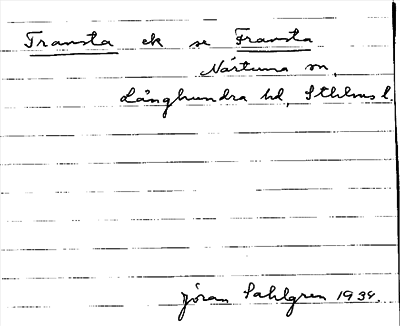 Transta ek se Fransta
Närtuna sn,
Långhundra hd, Sthlms l.
Jöran Sahlgren 1934.